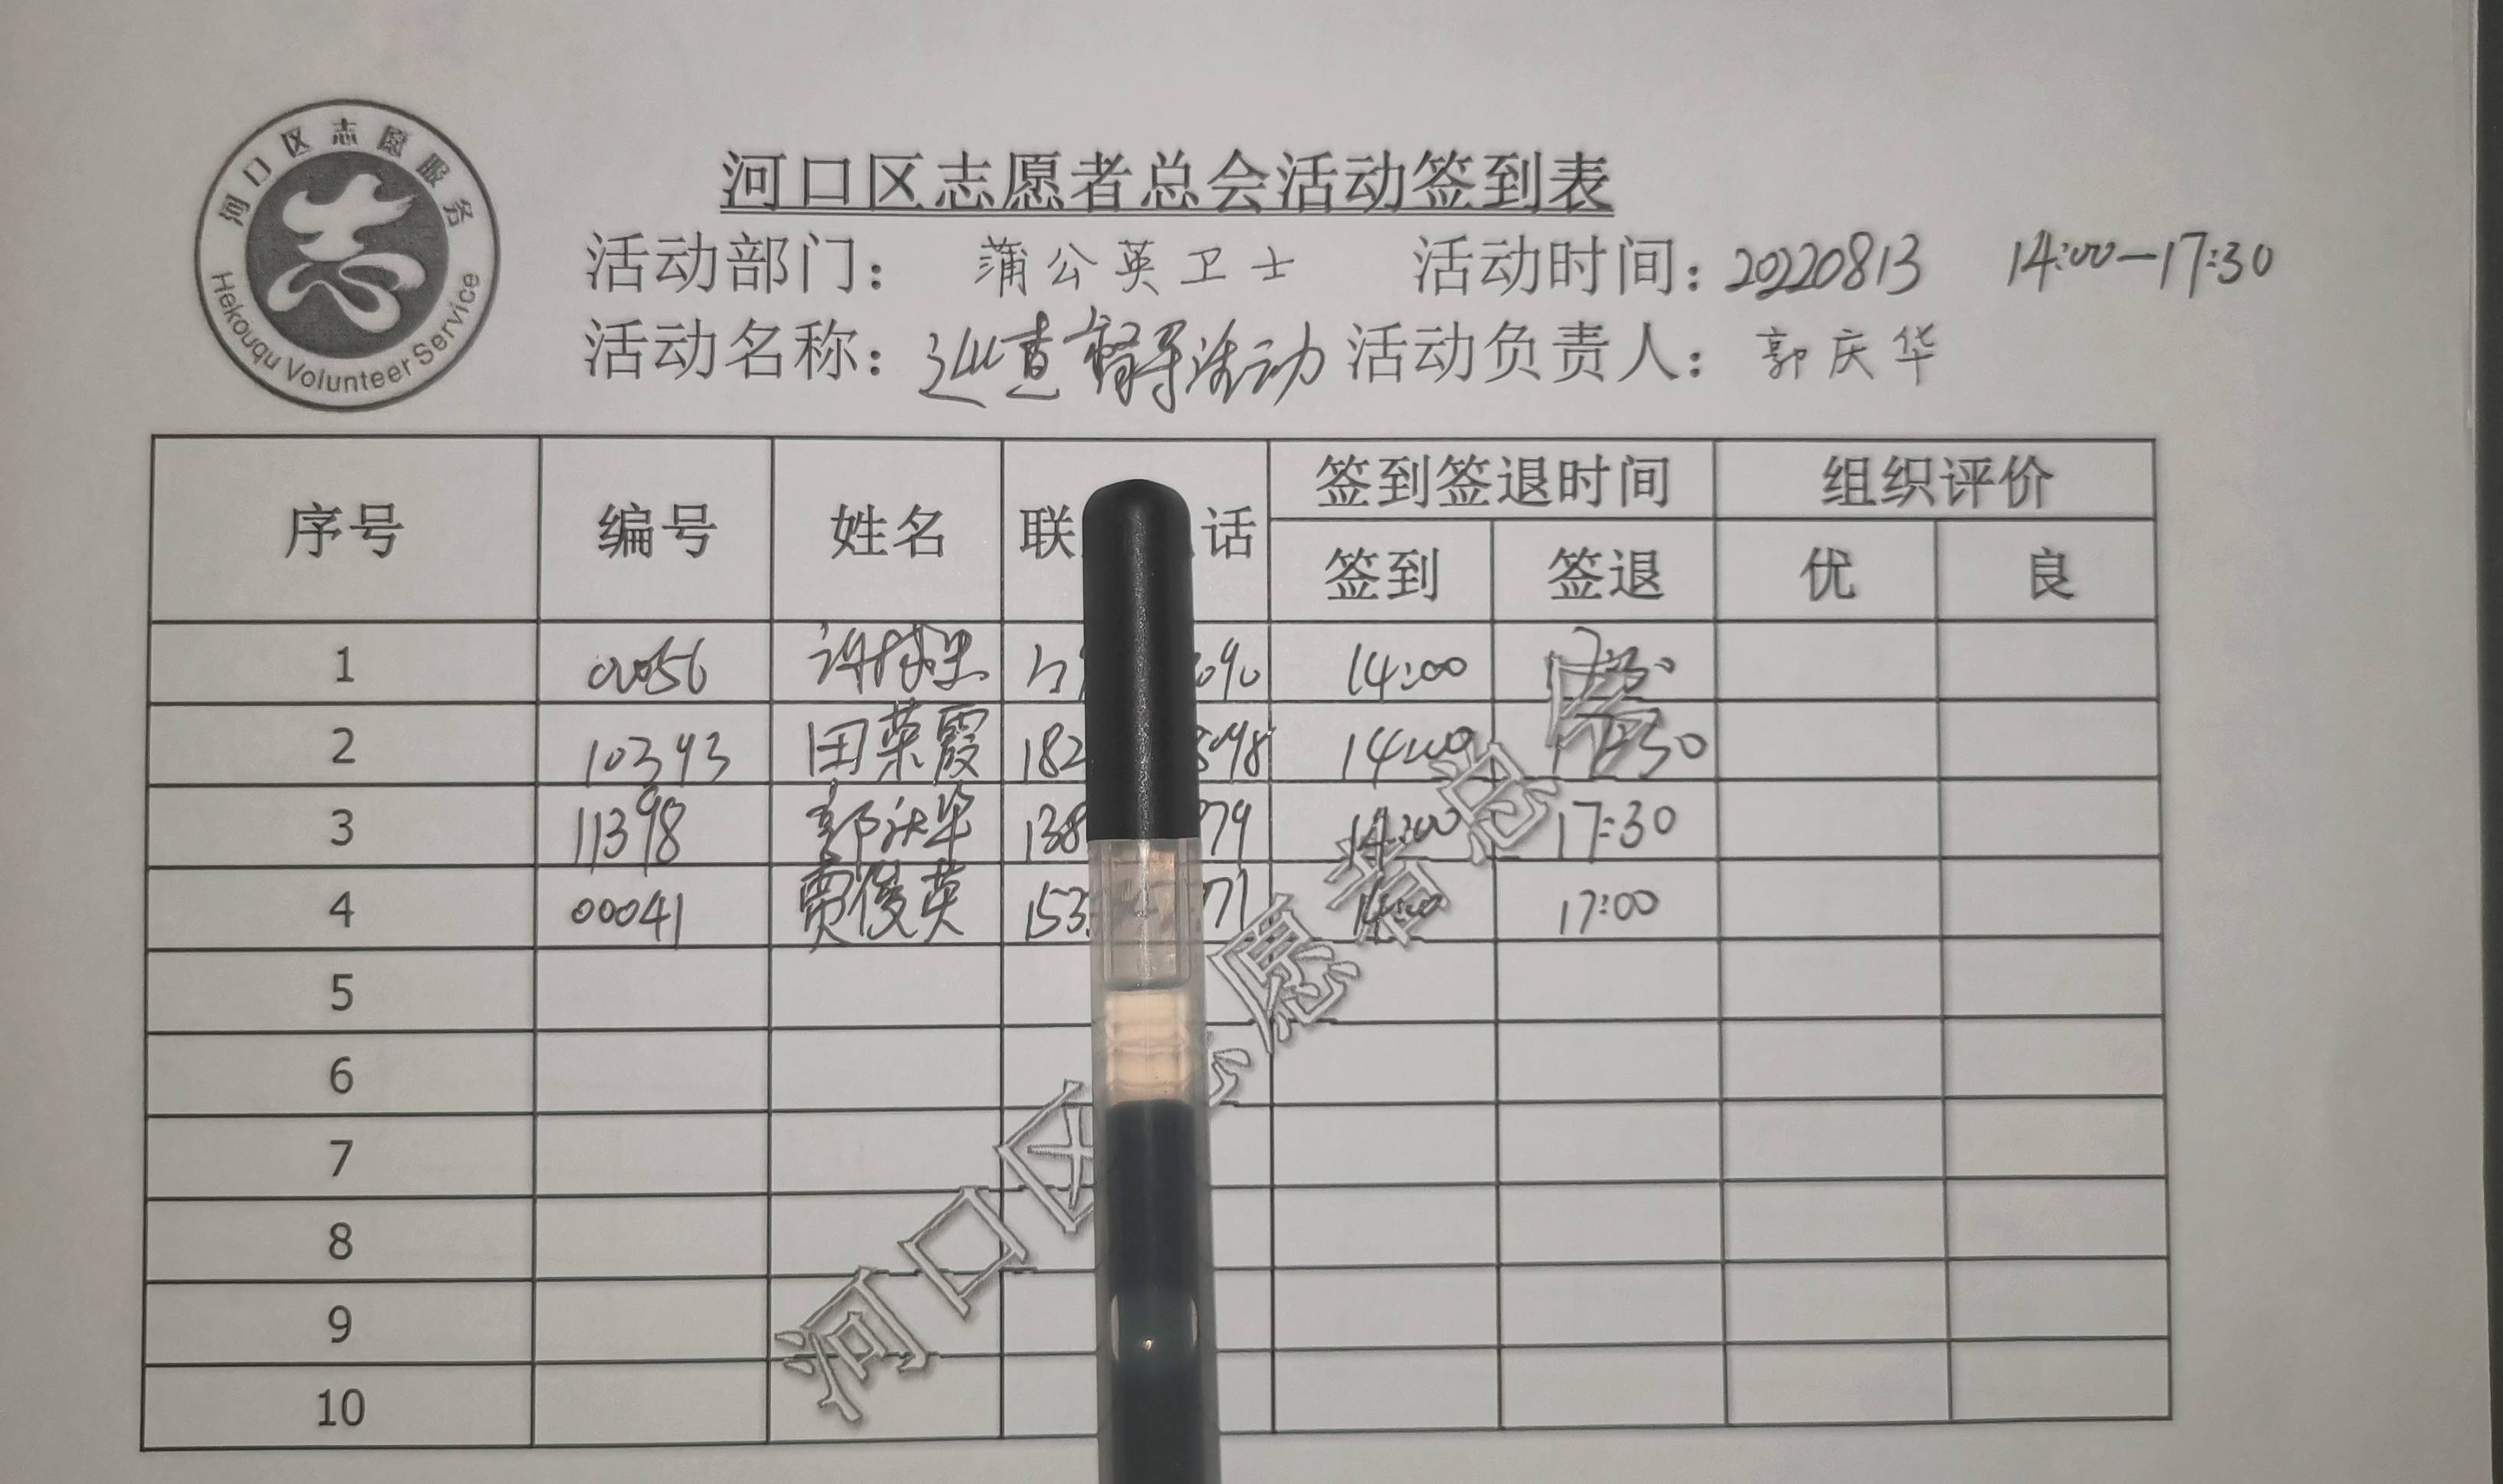 河口区志愿服务
Hekouqu Volunteer Service
河口区志愿者总会活动签到表
活动部门： 蒲公英卫士 活动时间：20220813 14:00—17:30
活动名称：巡查督导活动 活动负责人：郭庆华
序号 编号 姓名 联 话 签到签退时间 组织评价
签到 签退 优 良
1 00056 许 090 14:00 17:30
2 10393 田荣霞 182 898 14:00 17:30
3 11398 郭庆华 138 79 14:00 17:30
4 00041 贾俊英 153 71 14:00 17:00
5
6
7
8
9
10
河口区 愿者总